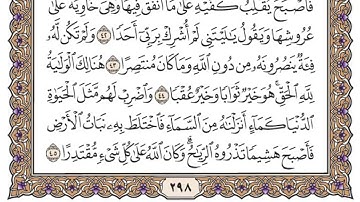 فَأَصْبَحَ يُقَلِّبُ كَفَّيْهِ عَلَىٰ مَا أَنفَقَ فِيهَا وَهِيَ خَاوِيَةٌ عَلَىٰ
عُرُوشِهَا وَيَقُولُ يَٰلَيْتَنِي لَمْ أُشْرِكْ بِرَبِّي أَحَدًا ٤٢ وَلَمْ تَكُن لَّهُۥ
فِئَةٌ يَنصُرُونَهُۥ مِن دُونِ ٱللَّهِ وَمَا كَانَ مُنتَصِرًا ٤٣ هُنَالِكَ ٱلْوَلَٰيَةُ
لِلَّهِ ٱلْحَقِّ هُوَ خَيْرٌ ثَوَابًا وَخَيْرٌ عُقْبًا ٤٤ وَٱضْرِبْ لَهُم مَّثَلَ ٱلْحَيَوٰةِ
ٱلدُّنْيَا كَمَآءٍ أَنزَلْنَٰهُ مِنَ ٱلسَّمَآءِ فَٱخْتَلَطَ بِهِۦ نَبَاتُ ٱلْأَرْضِ
فَأَصْبَحَ هَشِيمًا تَذْرُوهُ ٱلرِّيَٰحُ وَكَانَ ٱللَّهُ عَلَىٰ كُلِّ شَىْءٍ مُّقْتَدِرًا ٤٥
٢٩٨